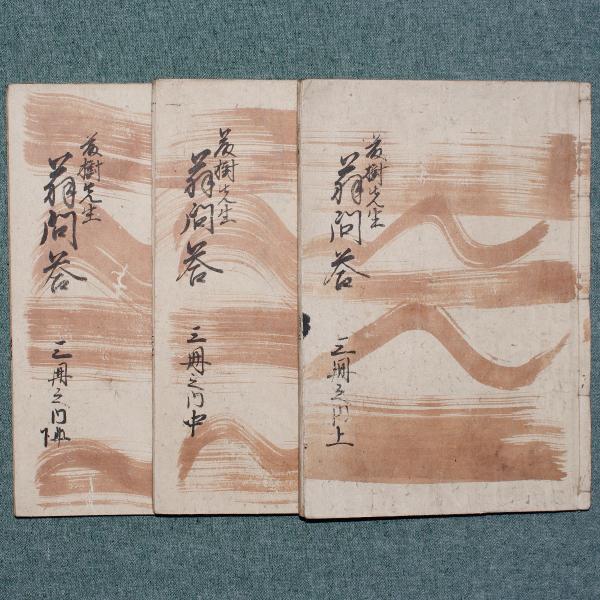 藤樹先生
翁問答
三冊之内上
藤樹先生
翁問答
三冊之内中
藤樹先生
翁問答
三冊之内下